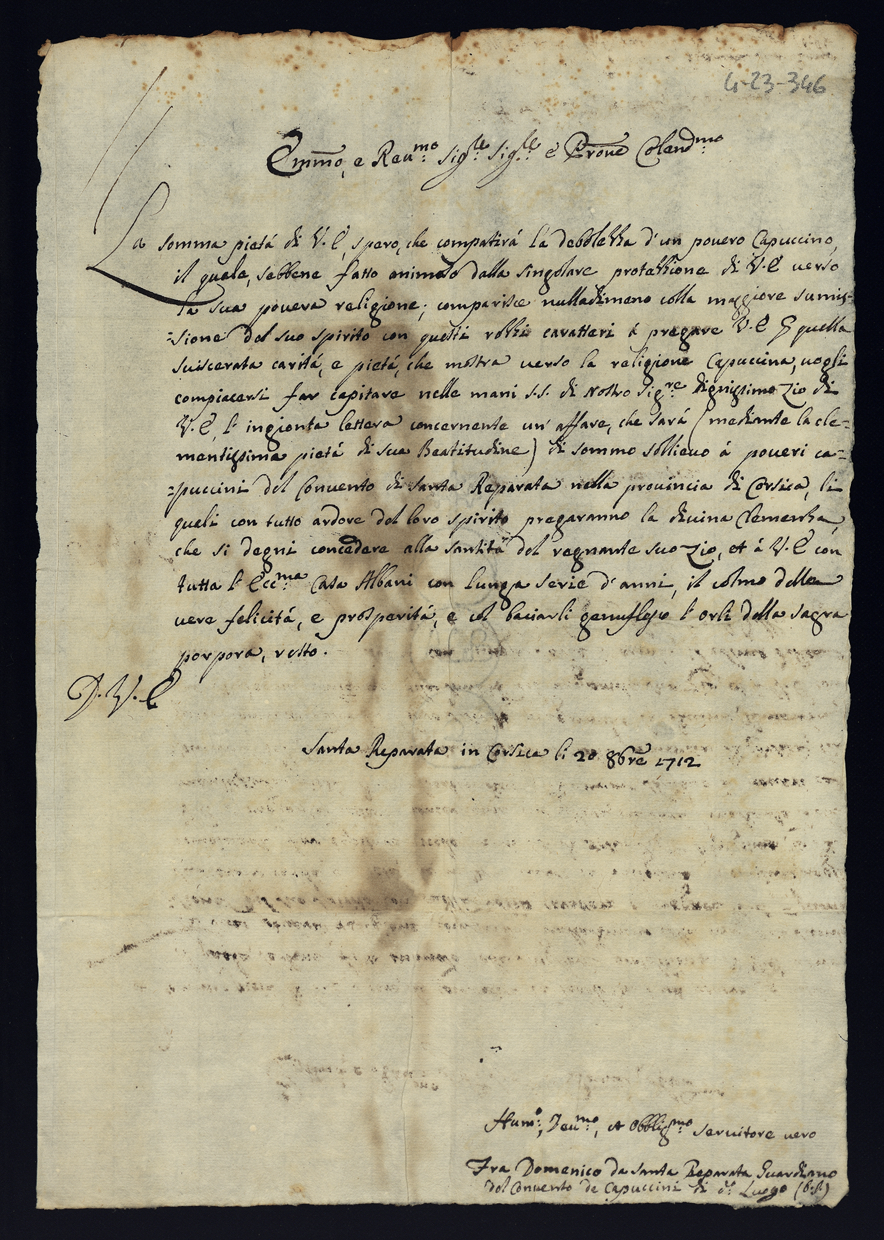 4-23-346
Emmo, e Reumo Sigre Sigre e Prone Colendmo
La somma pietá di V. E. spero, che compatirá la debbolezza d'un pouero Capuccino,
il quale, sebbene fatto animoso dalla singolare protezzione di V. E. uerso
la sua pouera religione; comparisce nulladimeno colla maggiore sumis=
=sione del suo spirito con questi rozzi caratteri á pregare V. E. quella
suiscerata caritá, e pietá, che mostra uerso la religione Capuccina, uogli
compiacersi far capitare nelle mani S.S. di Nostro Sigre dignissimo Zio di
V. E. l'ingionta lettera concernente un'affare, che sará (mediante la cle=
mentissima pietá di sua Beatitudine) di sommo sollieuo á poueri ca=
=puccini del Conuento di Santa Reparata nella prouincia di Corsica, li
quali con tutto ardore del loro spirito pregaranno la diuina Clemenza,
che si degni concedere alla santitá del regnante suo Zio, et á V. E. con
tutta l'Eccma Casa Albani con lunga serie d'anni, il colmo delle
uere felicitá, e prosperitá, e col baciarli genuflesso l'orli della sagra
porpora, resto.
D. V. E.
Santa Reparata in Corsica li 20 8bre 1712
Humo, Deumo, et Obbligmo seruitore uero
Fra Domenico da Santa Reparata Guardiano
del Conuento de Capuccini di do Luogo